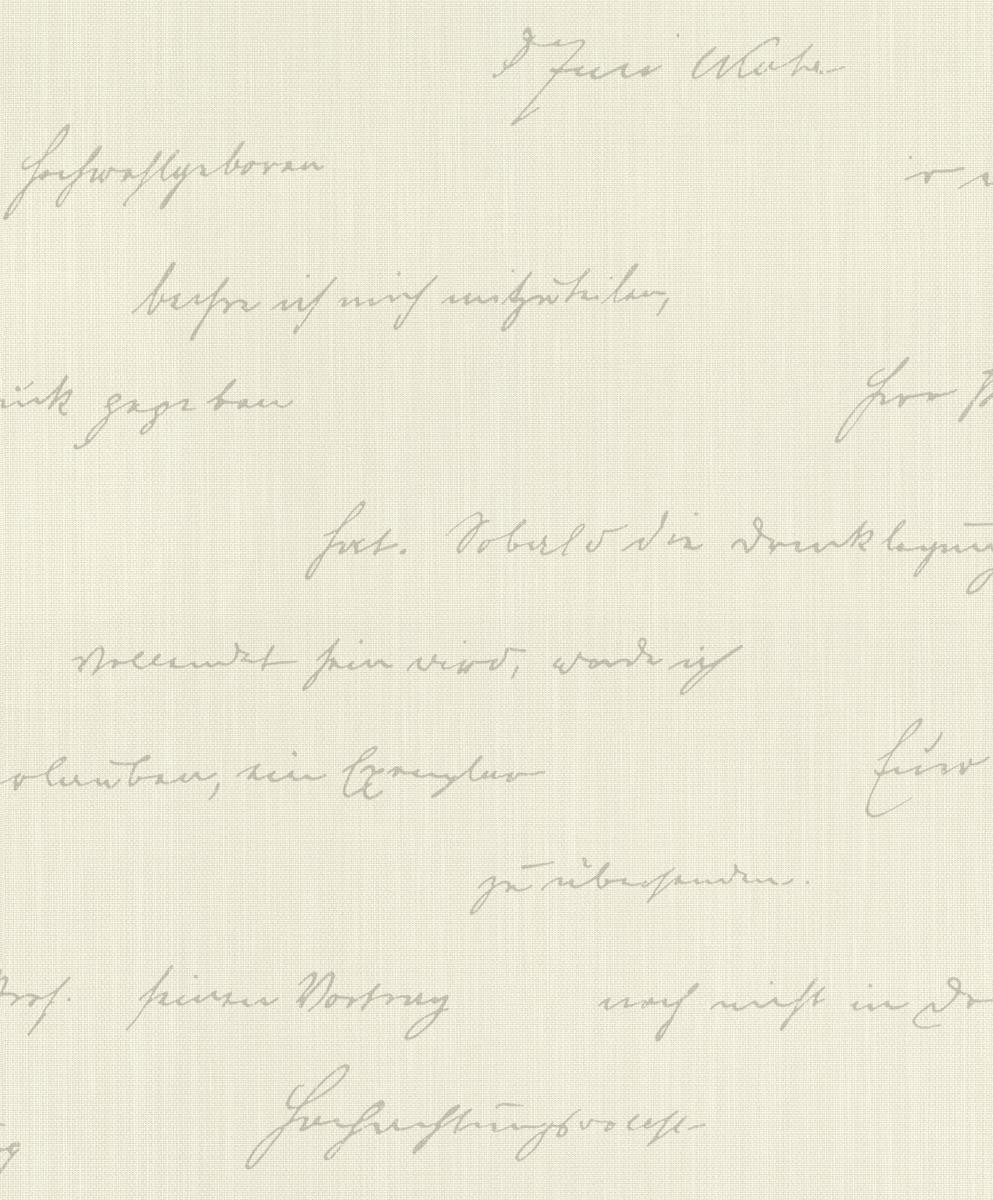 Hochwohlgeboren
beehre ich mich mitzuteilen,
ück gegeben Herr P
hat. Sobald die Drucklegun
vollendet sein wird, werde ich
rlauben, ein Exemplar Euer
zu übersenden.
Prof. seinen Vortrag noch nicht in Dr
g Hochachtungsvollst